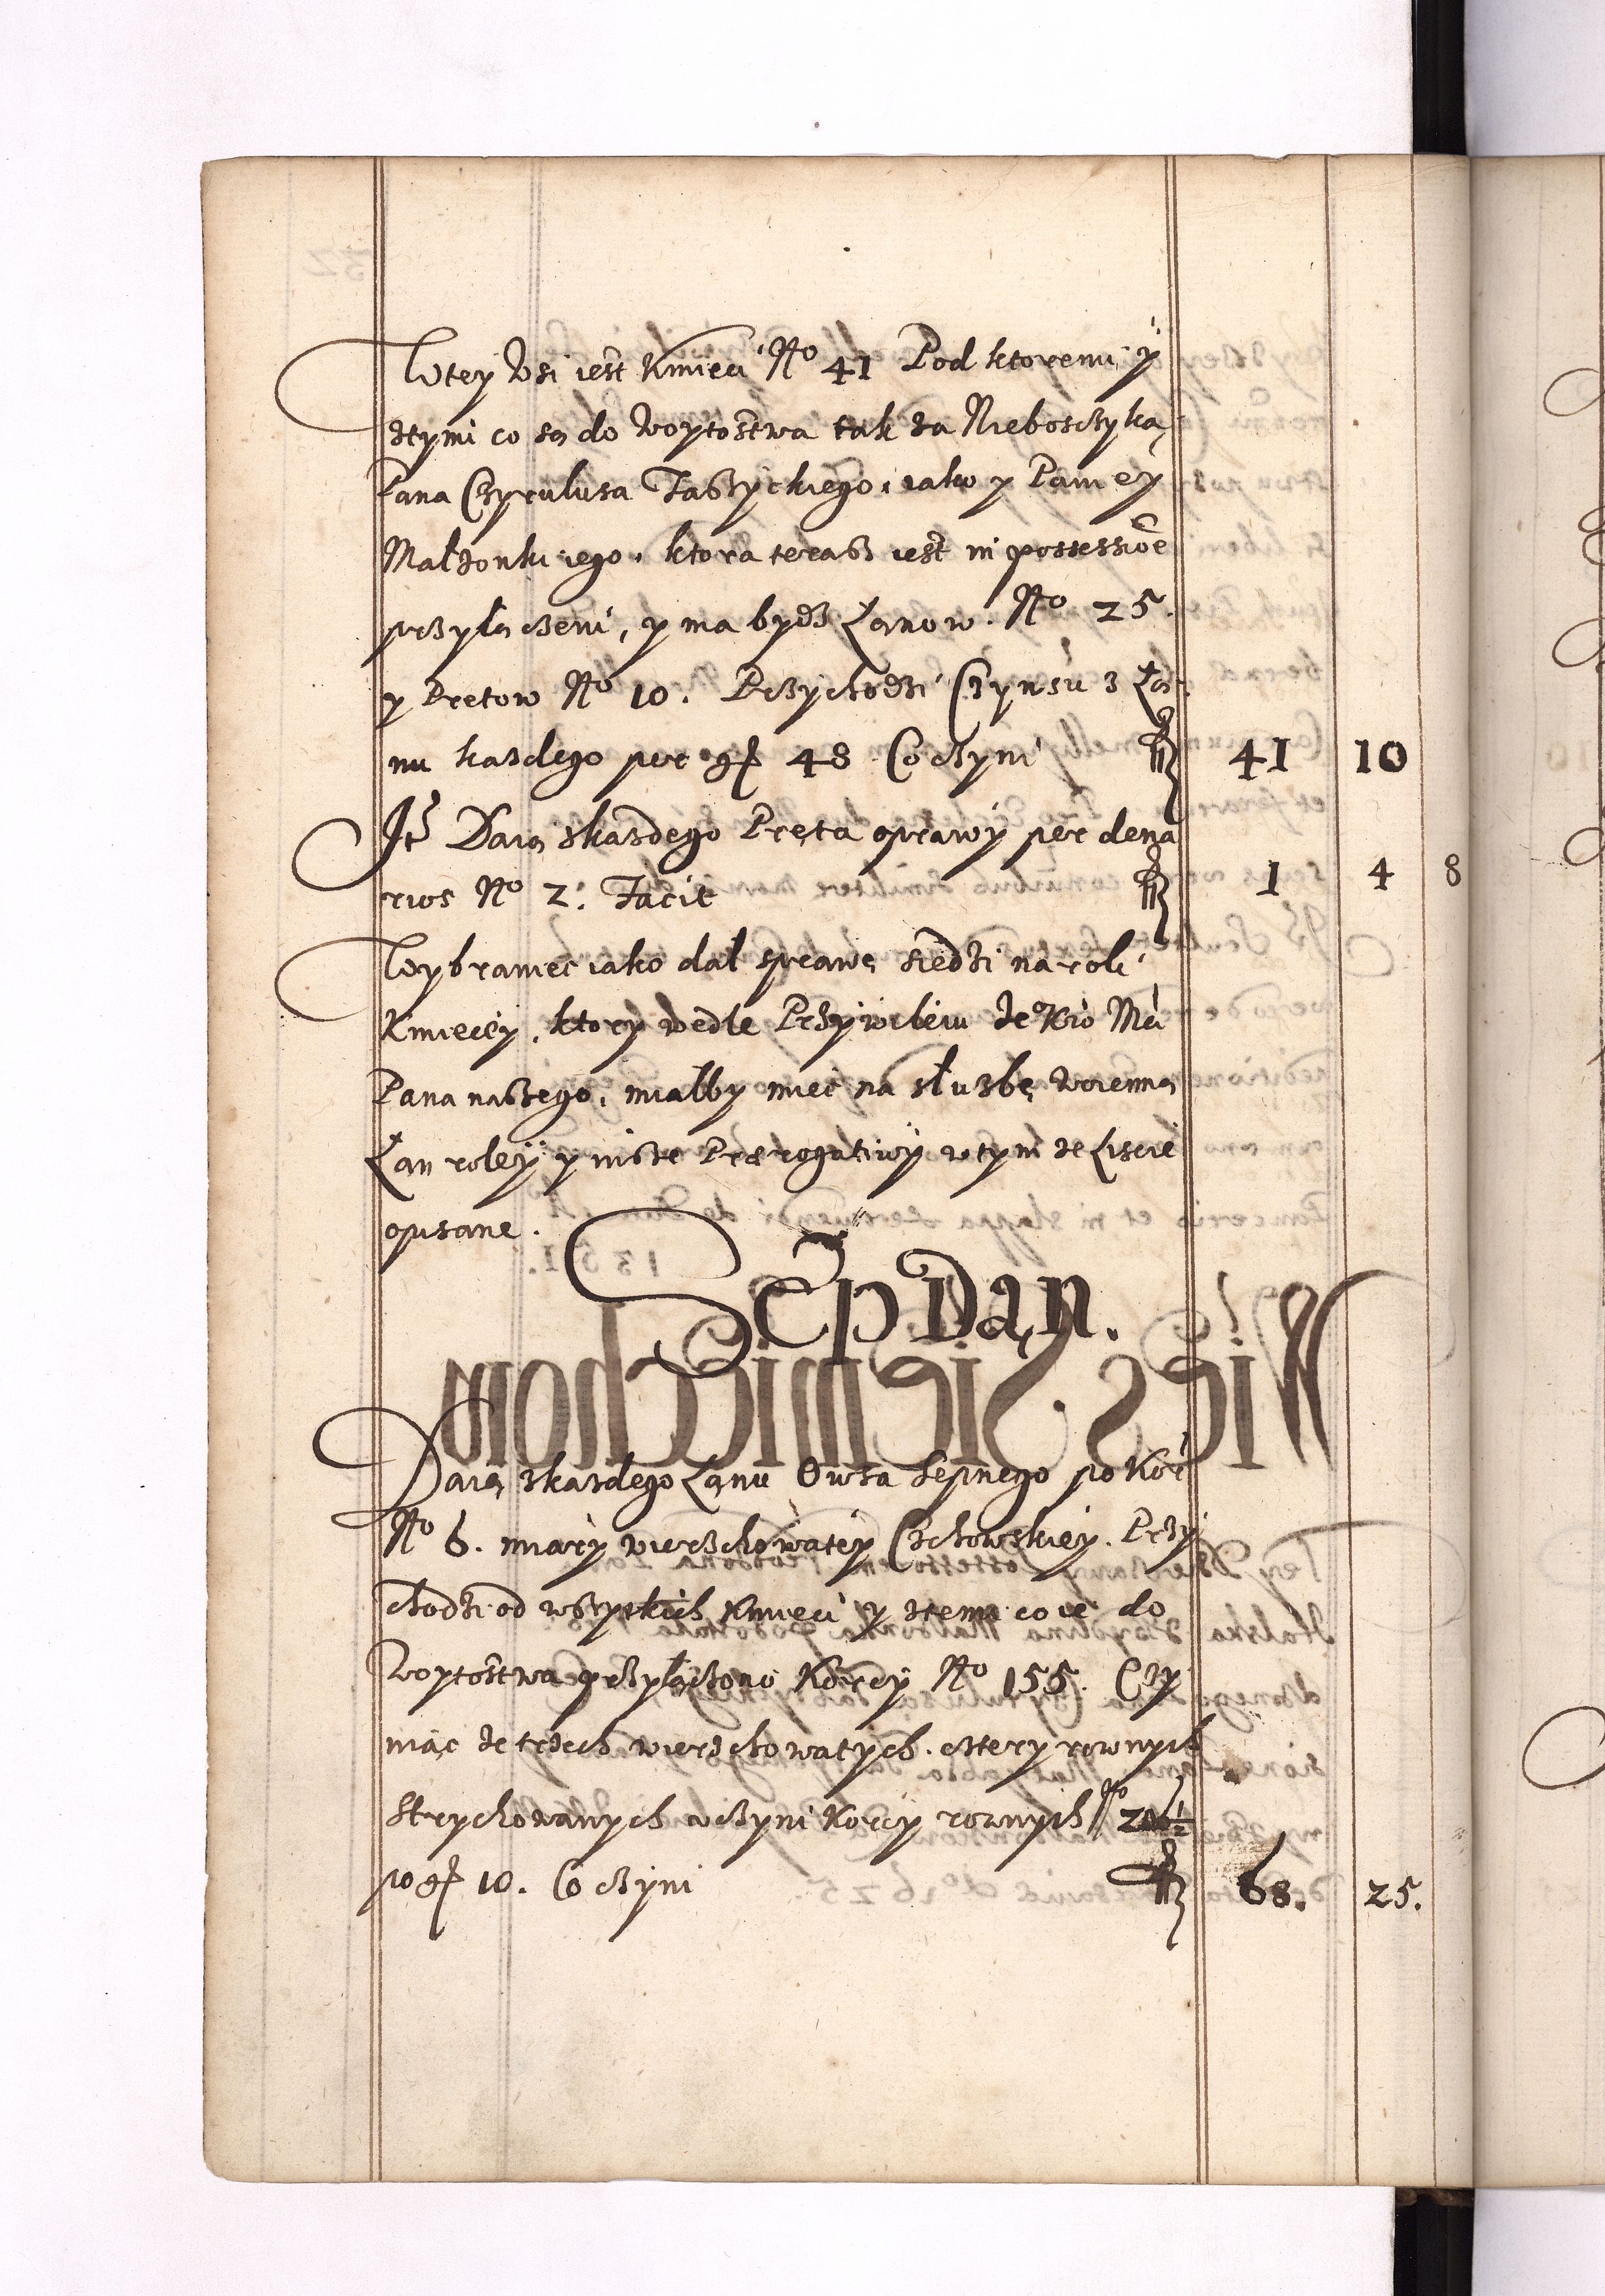 Wtey Wsi iest Kmieci No 41 Pod ktoremi y
ztymi co są do woytostwa tak za Nieboszyka
Pana Czyrulusa Taszyckiego, iako y Paniey
Małzonki iego, ktora terasz iest in possessioe
przyłączeni, y ma bydz Łanow. No 25.
y Pretow No 10. Przychodzi Czynsu z Ła-
nu kazdego per gr 48 Co czyni fl 41 10
It Daią zkazdego Pręta oprawy per dena
rios No 2. Facit fl 1 4 8
Wybraniec iako dał sprawę siedzi na roli
Kmieczey, ktory wedle Przywileiu Je Kro Mci
Pana naszego, miałby miec na słuzbę woienną
Łan roley y insze Prerogatiwy wtym ze Liscie
opisane.
Sep Dań.
Daią zkazdego Łanu Owsa sepnego po Kor
No 6. miary wierzchowatey Czchowskiey. Przy
chodzi od wszytkich Kmieci y ztemi co ie do
woytostwa przyłączono Korcy No 155. Czy
niąc ze trzech wierzchowatych cztery rownych
Strychowanych vczyni Korcy rownych No
po gr 10. Co czyni fl 68. 25.